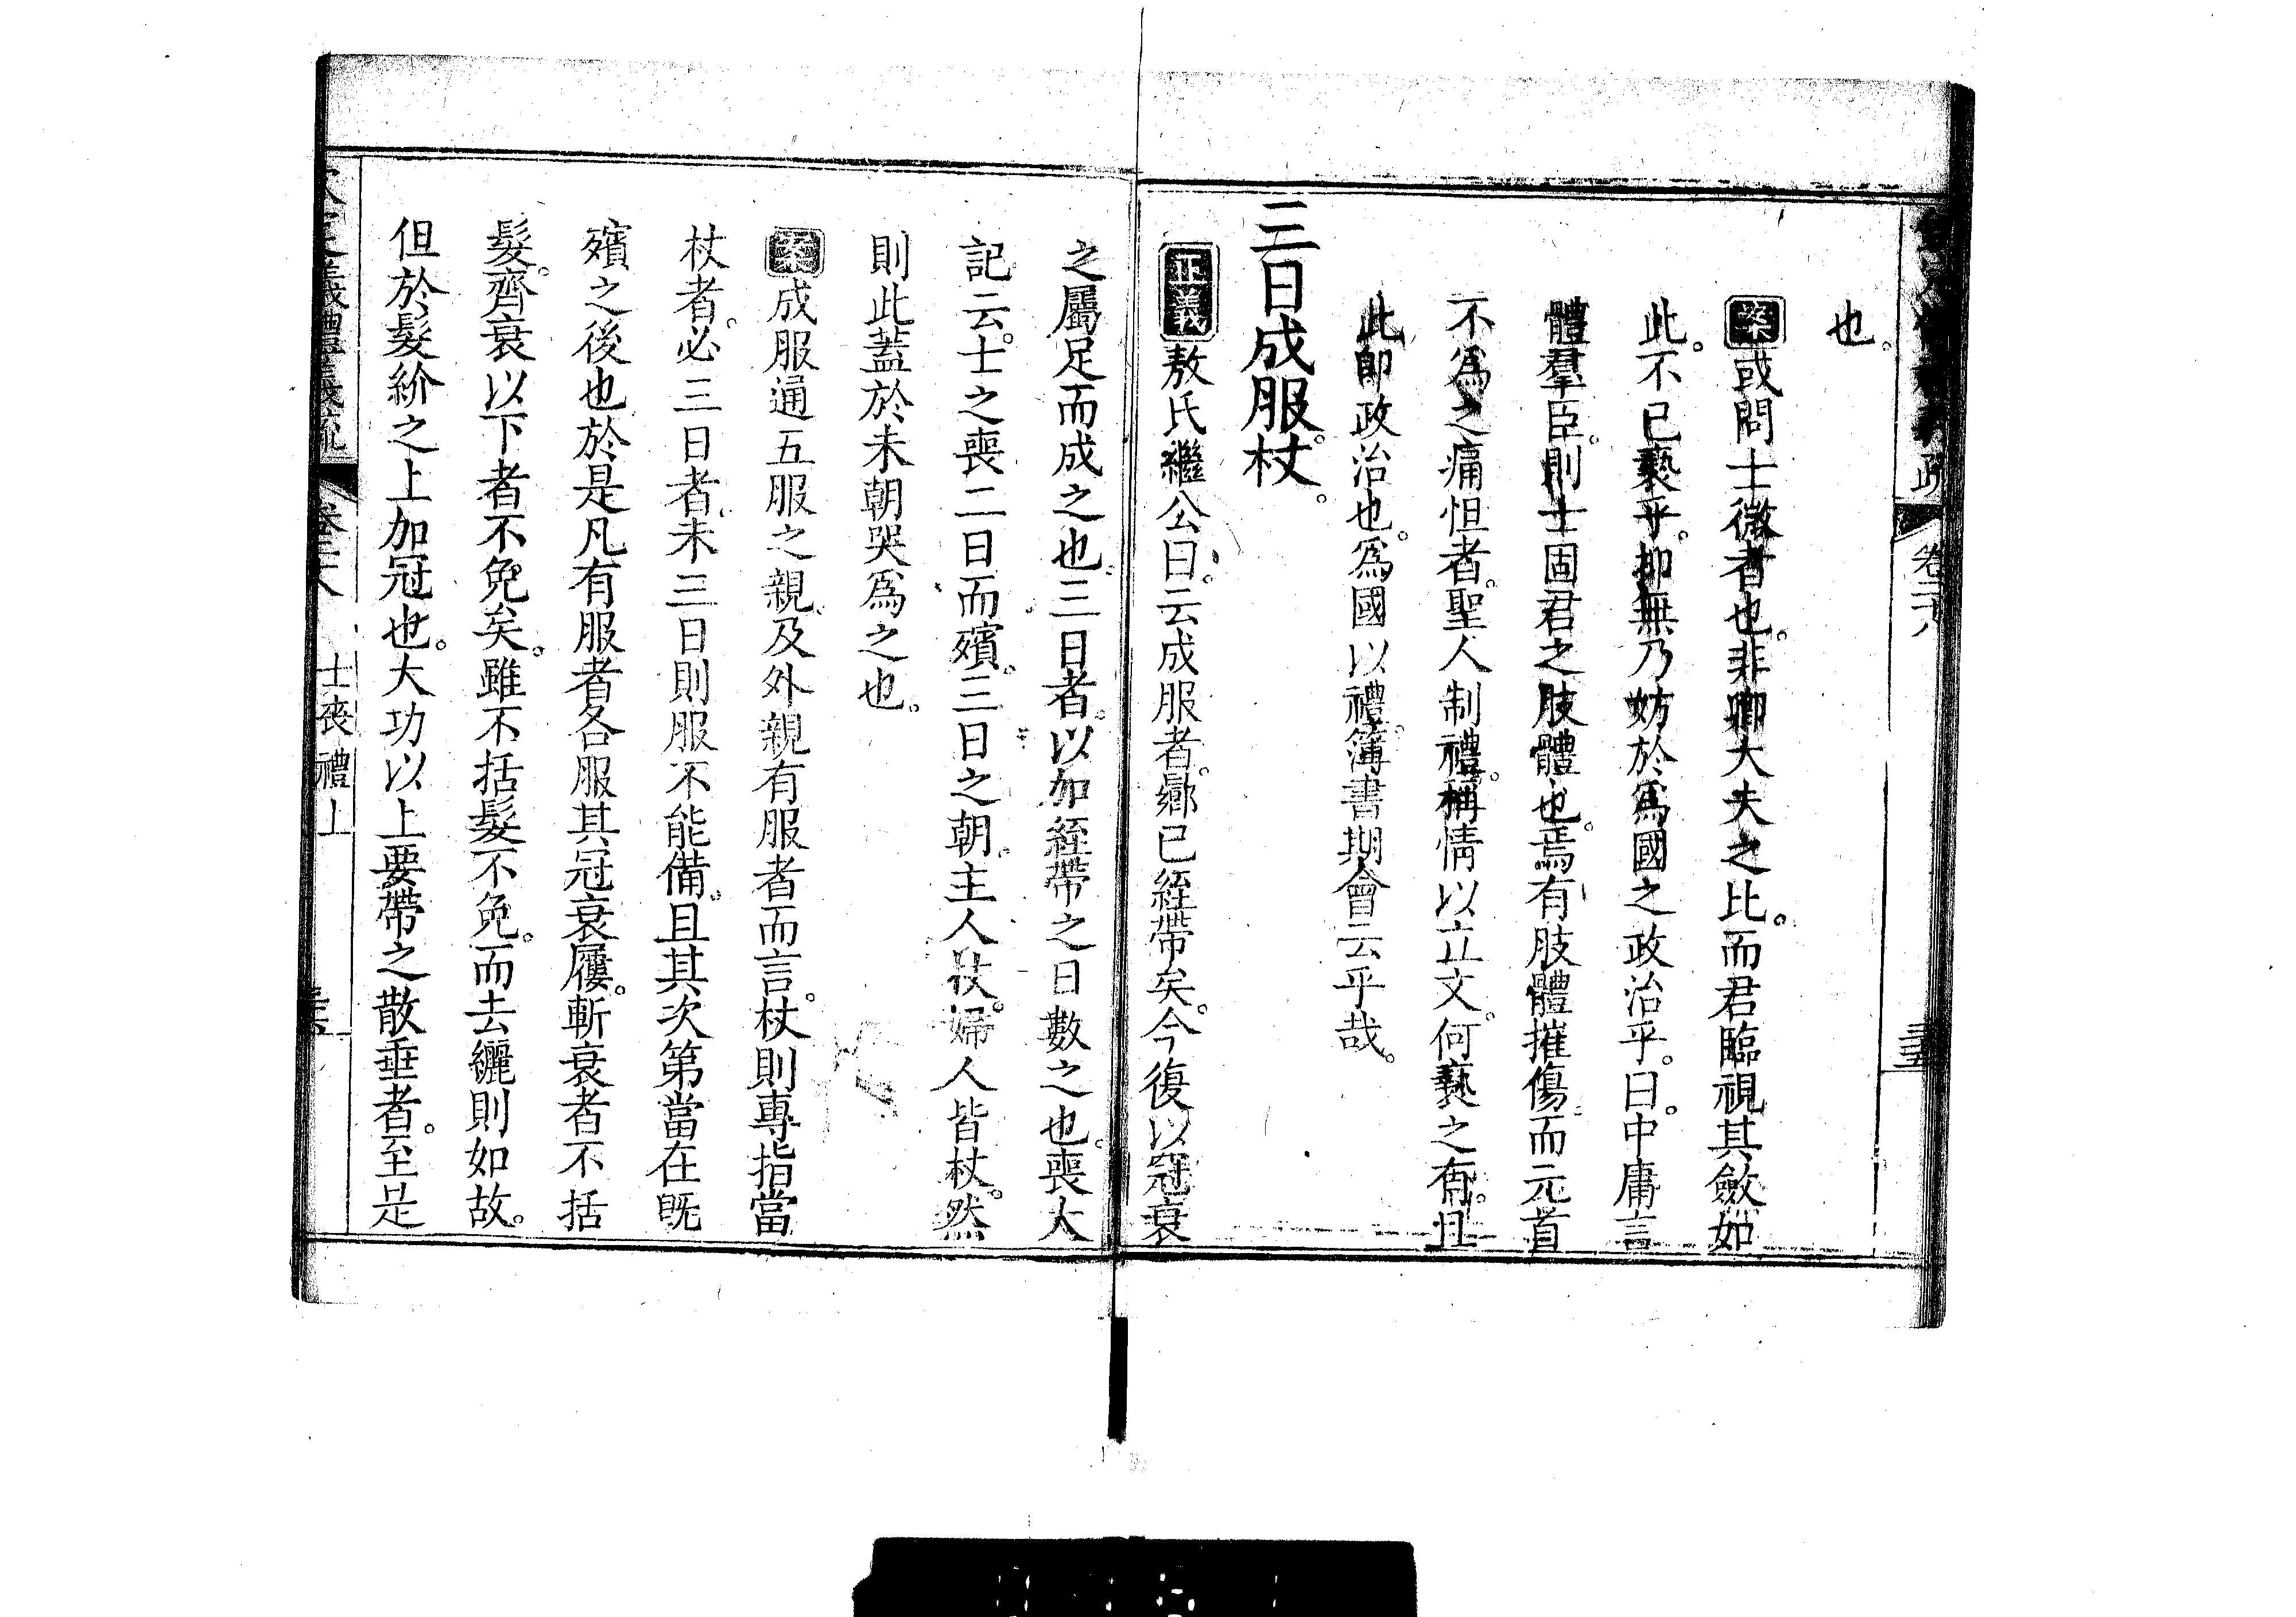 也。
案或問士微者也。非卿大夫之比。而君臨視其斂如
此。不已褻乎。抑無乃妨於為國之政治乎。曰。中庸言
體羣臣。則士固君之肢體也。焉有肢體摧傷。而元首
不為之痛怛者。聖人制禮。稱情以立文。何褻之有。且
此卽政治也。為國以禮。簿書期會云乎哉。
三日成服杖。
正義敖氏繼公曰。云成服者。鄉已絰帶矣。今復以冠衰
之屬足而成之也。三日者。以加絰帶之日數之也。喪大
記云。士之喪二日而殯。三日之朝。主人杖。婦人皆杖。然
則此蓋於未朝哭為之也。
案成服通五服之親。及外親有服者而言。杖則專指當
杖者。必三日者。未三日則服不能備。且其次第當在既
殯之後也於是凡有服者各服其冠衰屨。斬衰者不括
髮。齊衰以下者不免矣。雖不括髮不免。而去纚則如故。
但於髮紒之上加冠也。大功以上要帶之散垂者。至是
士喪禮上